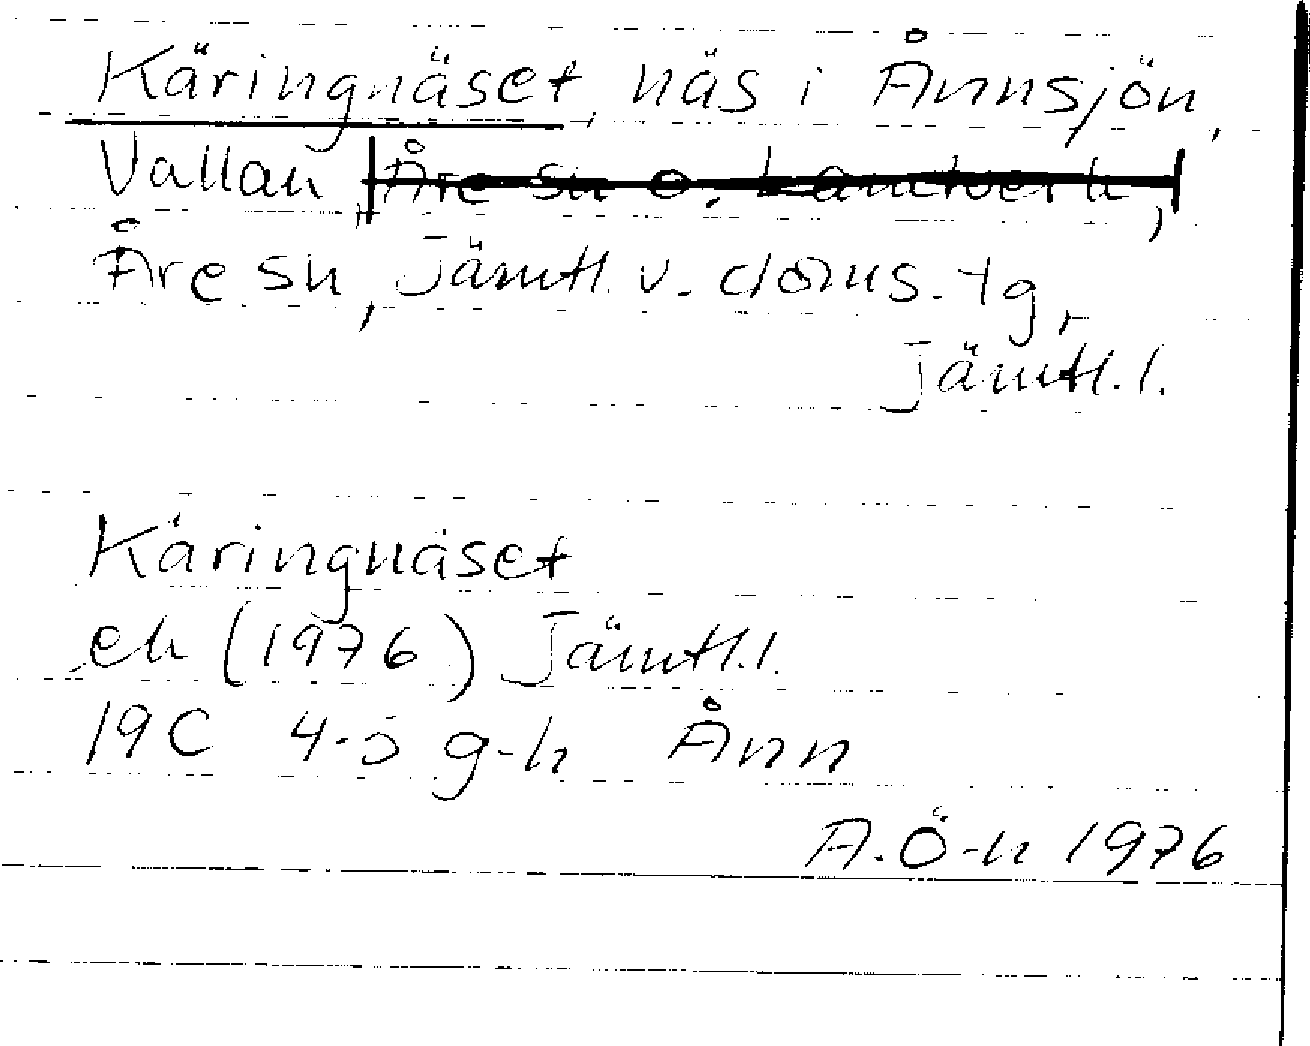 Käringnäset, näs i Ånnsjön,
Vallan, Åre sn o. landverk,
Åre sn, Jämtl. v. doms. tg,
Jämtl. l.
Käringnäset
ek (1976) Jämtl. l.
19C 4-5 g-h Ånn
A. Ö-n 1976